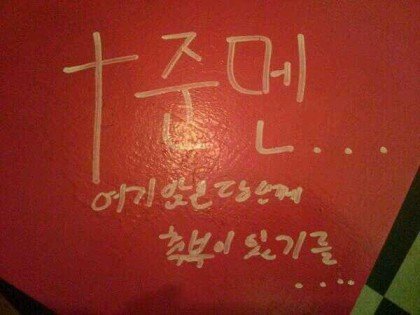 †준멘...
여기 앉은 당신께
축복이 있기를
....